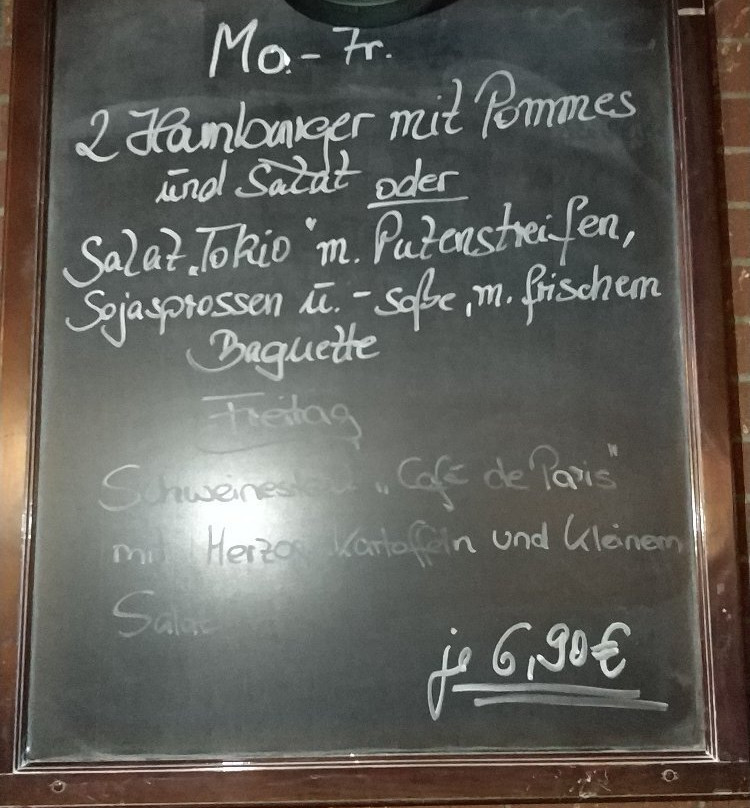 Mo.- Fr.
2 Hamburger mit Pommes
und Salat oder
Salat „Tokio" m. Putenstreifen,
Sojasprossen u. - soße, m. frischem
Baguette
Freitag
„Café de Paris"
mit Herzog Kartoffeln und kleinem
Salat
je 6,90€